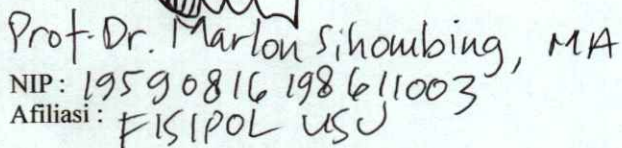 Prof. Dr. Marlon Sihombing, MA
NIP : 19590816 198611003
Afiliasi : FISIPOL USU